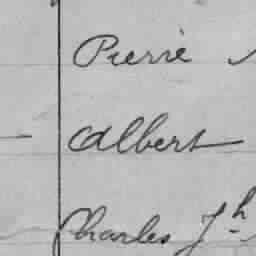 Pierre
Albert
Charles Jh